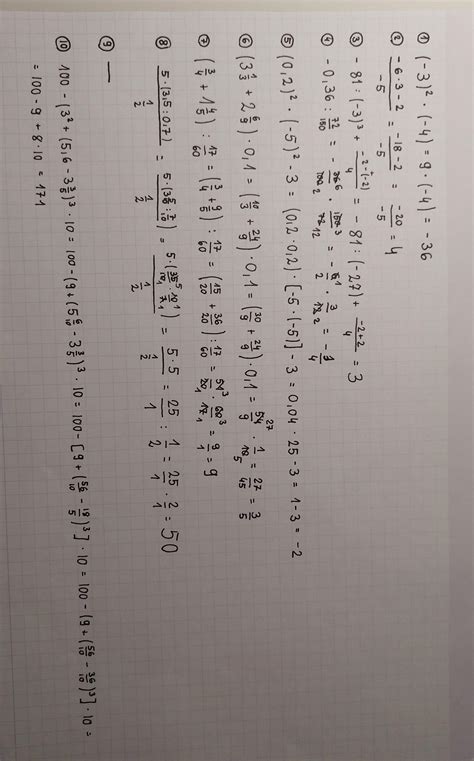 ① (-3)² · (-4) = 9 · (-4) = -36
② (-6·3-2)/-5 = (-18-2)/-5 = -20/-5 = 4
③ -81 : (-3)³ + (-2-(-2))/4 = -81 : (-27) + (-2+2)/4 = 3
④ -0,36 : 72/150
⑤ (0,2)² · (-5)² - 3 = (0,2 · 0,2) · [-5 · (-5)] - 3 = 0,04 · 25 - 3 = 1 - 3 = -2
⑥ (3 1/3 + 2 6/9) · 0,1 = (10/3 + 24/9) · 0,1 = (30/9 + 24/9) · 0,1 = 54/9 · 1/10 = 27/45 = 3/5
⑦ (3/4 + 1 4/5) : 17/60 = (3/4 + 9/5) : 17/60 = (15/20 + 36/20) : 17/60 = 51/20 · 60/17 = 9/1 = 9
⑧ 5·(3,5 : 0,7) / 1/2 = 5·(35/10 · 10/7) / 1/2 = 5·5 / 1/2 = 25/1 : 1/2 = 25/1 · 2/1 = 50
⑨ —
⑩ 100 - (3² + (5,6 - 3 3/5)³ · 10 = 100 - (9 + (5 6/10 - 3 3/5)³ · 10 = 100 - [9 + (56/10 - 18/5)³] · 10 = 100 - (9 + (56/10 - 36/10)³] · 10 =
= 100 - 9 + 8 · 10 = 171